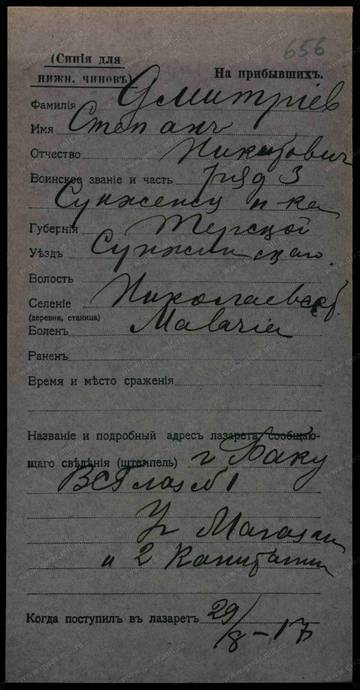 656
(Синія для
нижн. чиновъ)
На прибывшихъ.
Фамилія Дмитріев
Имя Степанъ
Отчество Никитович
Воинское званіе и часть ряд 3
Сунженск п-ка
Губернія Терской
Уѣздъ Сунженскаго.
Волость
Селеніе Николаевск
(деревня, станица)
Боленъ Malaria
Раненъ
Время и мѣсто сраженія
Названіе и подробный адресъ лазарета сообщаю-
щаго свѣдѣнія (штемпель) г Баку
ВСГ лаз №1
Уг Магазин
и 2 Капитан
Когда поступилъ въ лазаретъ 29/8-17